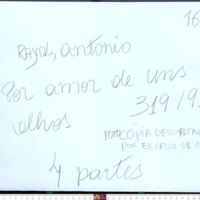 16
RAYOL, antonio
Por amor de uns
olhos
319/9
FOTOCÓPIA DESCARTA
POR EXCESSO DE
4 partes